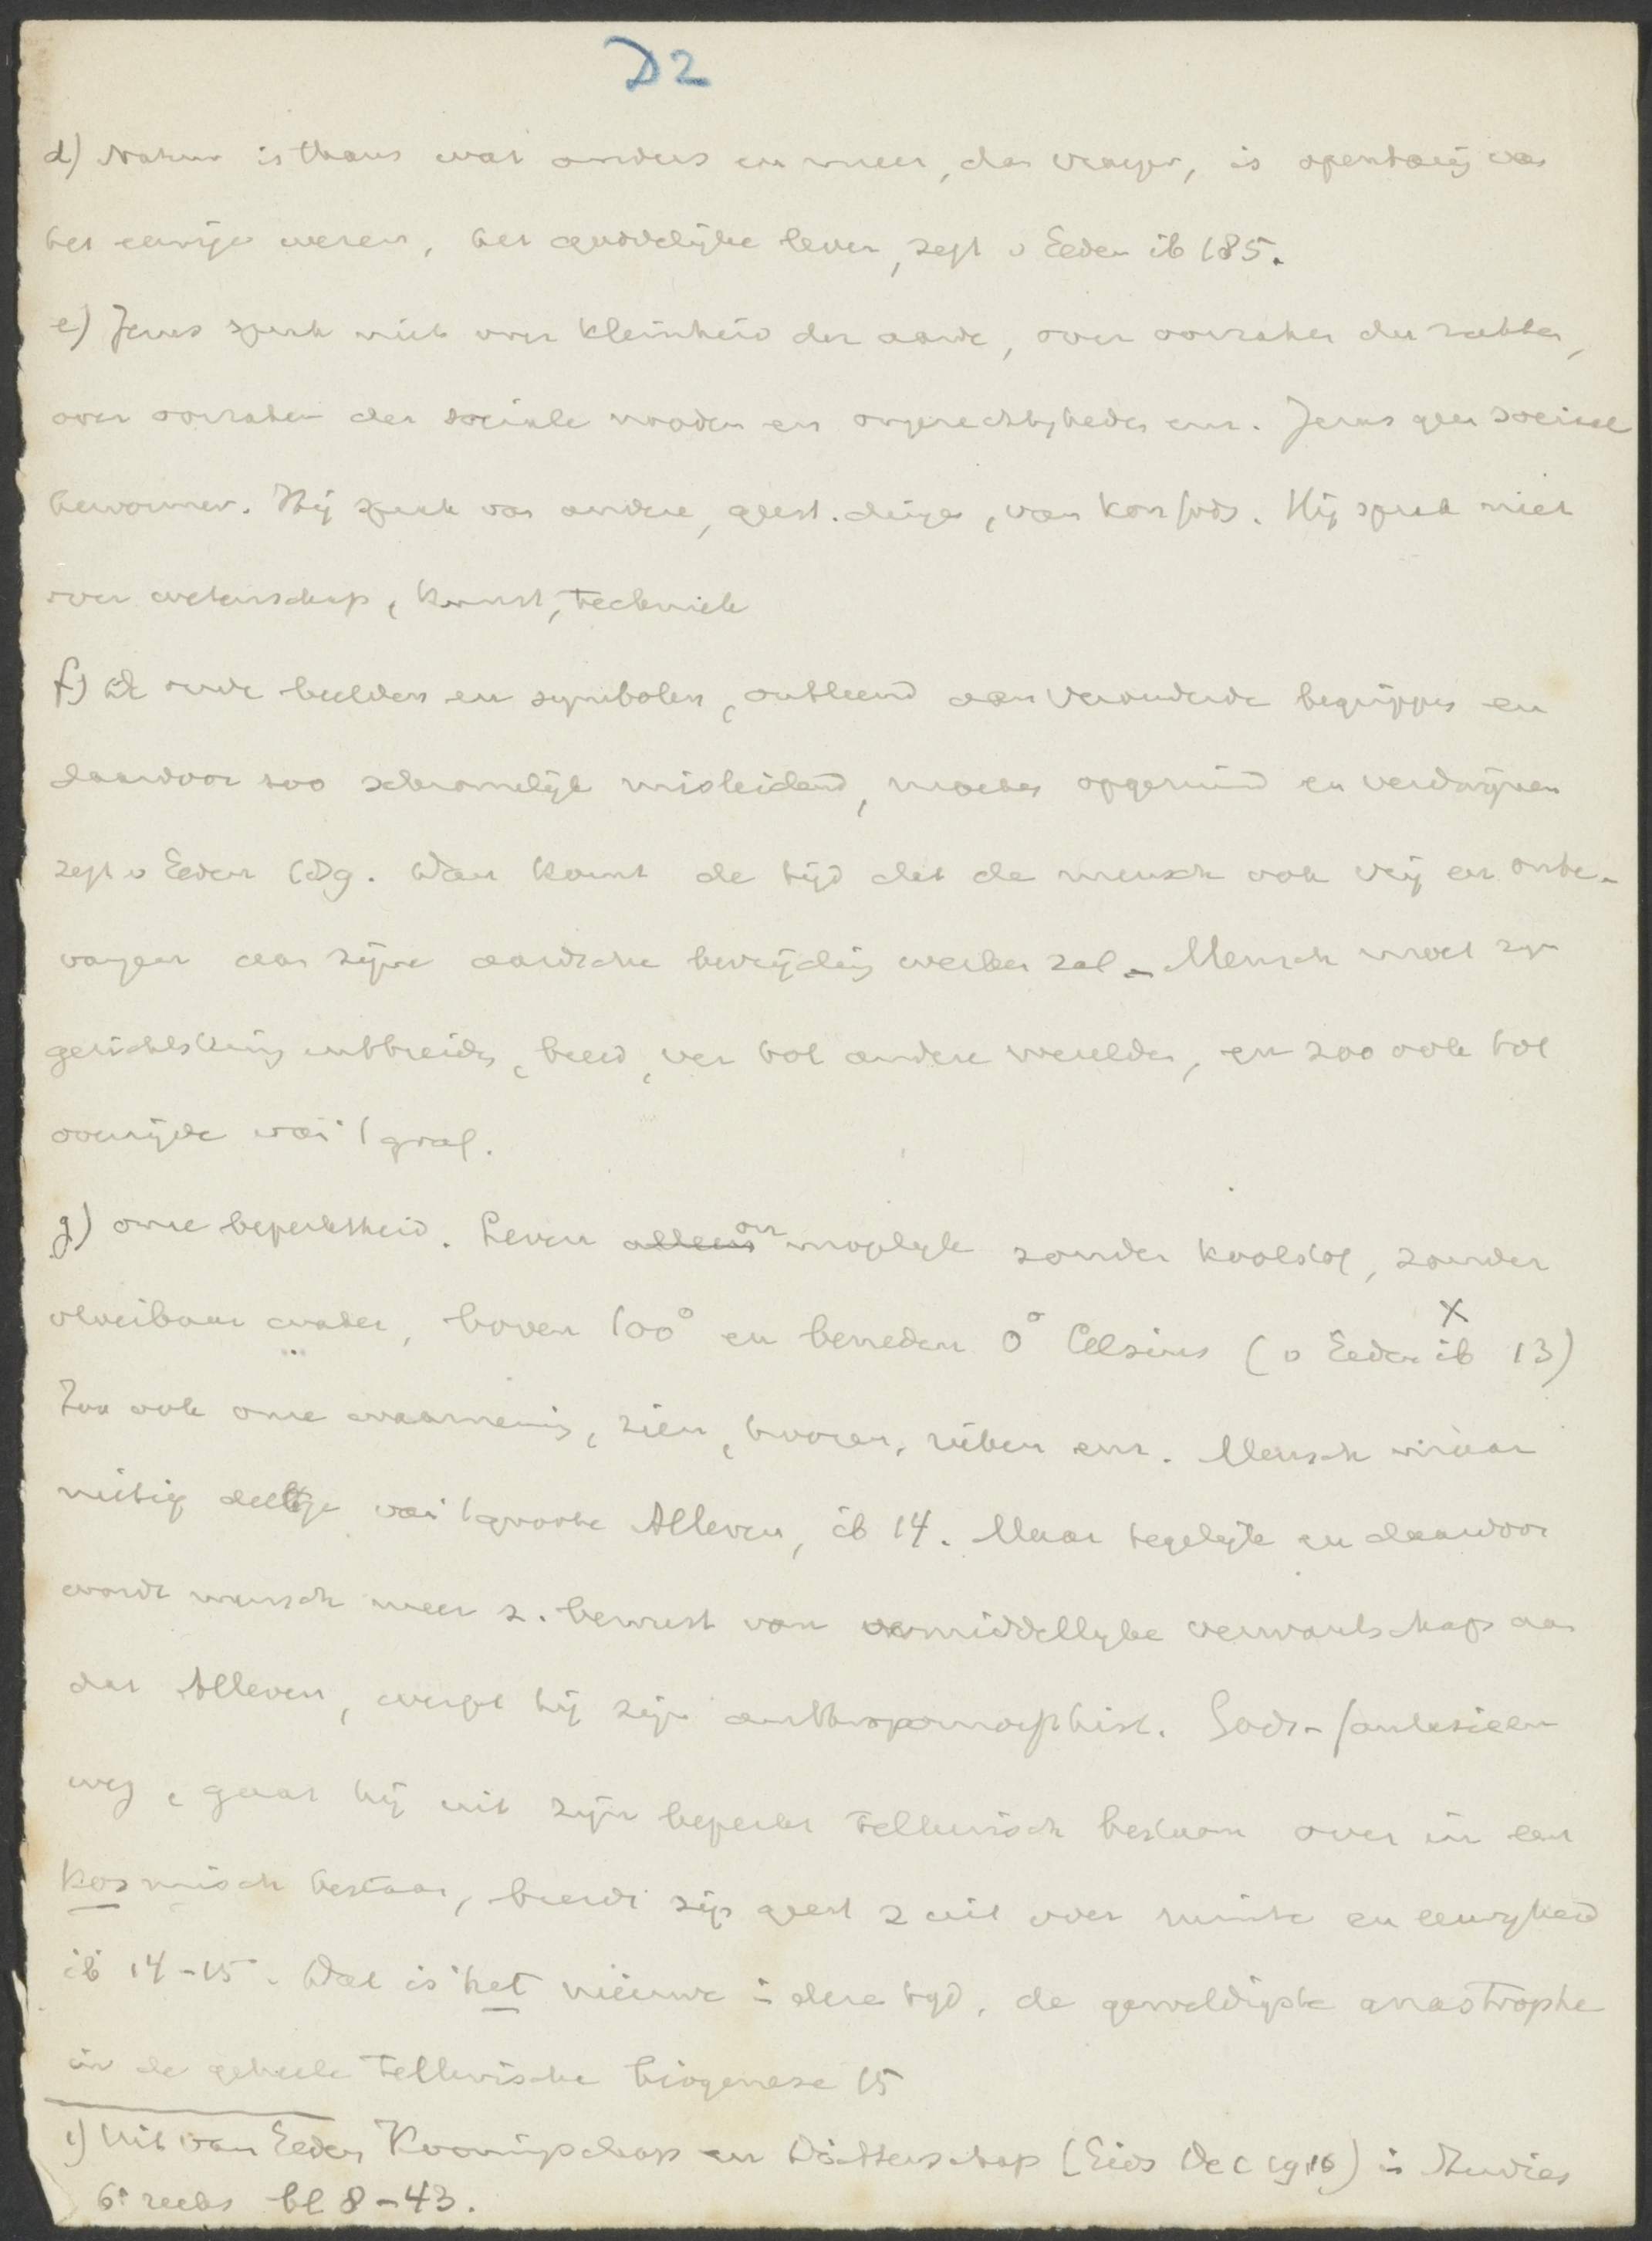 D2
d) Natuur is thans wat anders en meer, dan vroeger, is openbaring van
het eeuwige wezen, het goddelijke leven, zegt v Eeden ib 185.
e) Jezus sprak niet over kleinheid der aarde, over oorzaken der ziekten,
over oorzaken der sociale nooden en ongerechtigheden enz. Jezus geen sociaal
hervormer. Hij sprak van andere, geest. dingen, van Kon Gods. Hij sprak niet
over wetenschap, kunst, techniek
f) De oude beelden en symbolen, ontleend aan verouderde begrippen en
daardoor zoo schromelijk misleidend, moeten opgeruimd en verdwijnen
zegt v Eeden 189. Dan komt de tijd dat de mensch ook vrij en onbe-
vangen aan zijne aardsche bevrijding werken zal - Mensch moet zijn
gezichtskring uitbreiden, breed, ver tot andere werelden, en zoo ook tot
overzijde van 't graf.
g) onze beperktheid. Leven alleen on mogelijk zonder koolstof, zonder
vloeibaar water, boven 100° en beneden 0° Celsius (v Eeden ib X 13)
Zoo ook onze waarneming, zien, hooren, ruiken enz. Mensch
nietig deeltje van 't groote Alleven, ib 14. Maar tegelijk en daardoor
wordt mensch meer z. bewust van onmiddellijke verwantschap aan
dat Alleven, werpt hij zijn anthropomorphist. Gods-fantasieen
weg, gaat hij uit zijn beperkt tellurisch bestaan over in een
kosmisch bestaan, breidt zijn geest z uit over ruimte en eeuwigheid
ib 14-15. Dat is het nieuwe in deze tijd, de geweldigste anastrophe
in de geheele tellurische biogenese 15
1) Uit van Eeden Koningschap en Dichterschap (Gids Dec 1910) in Studies
6e reeks bl 8-43.